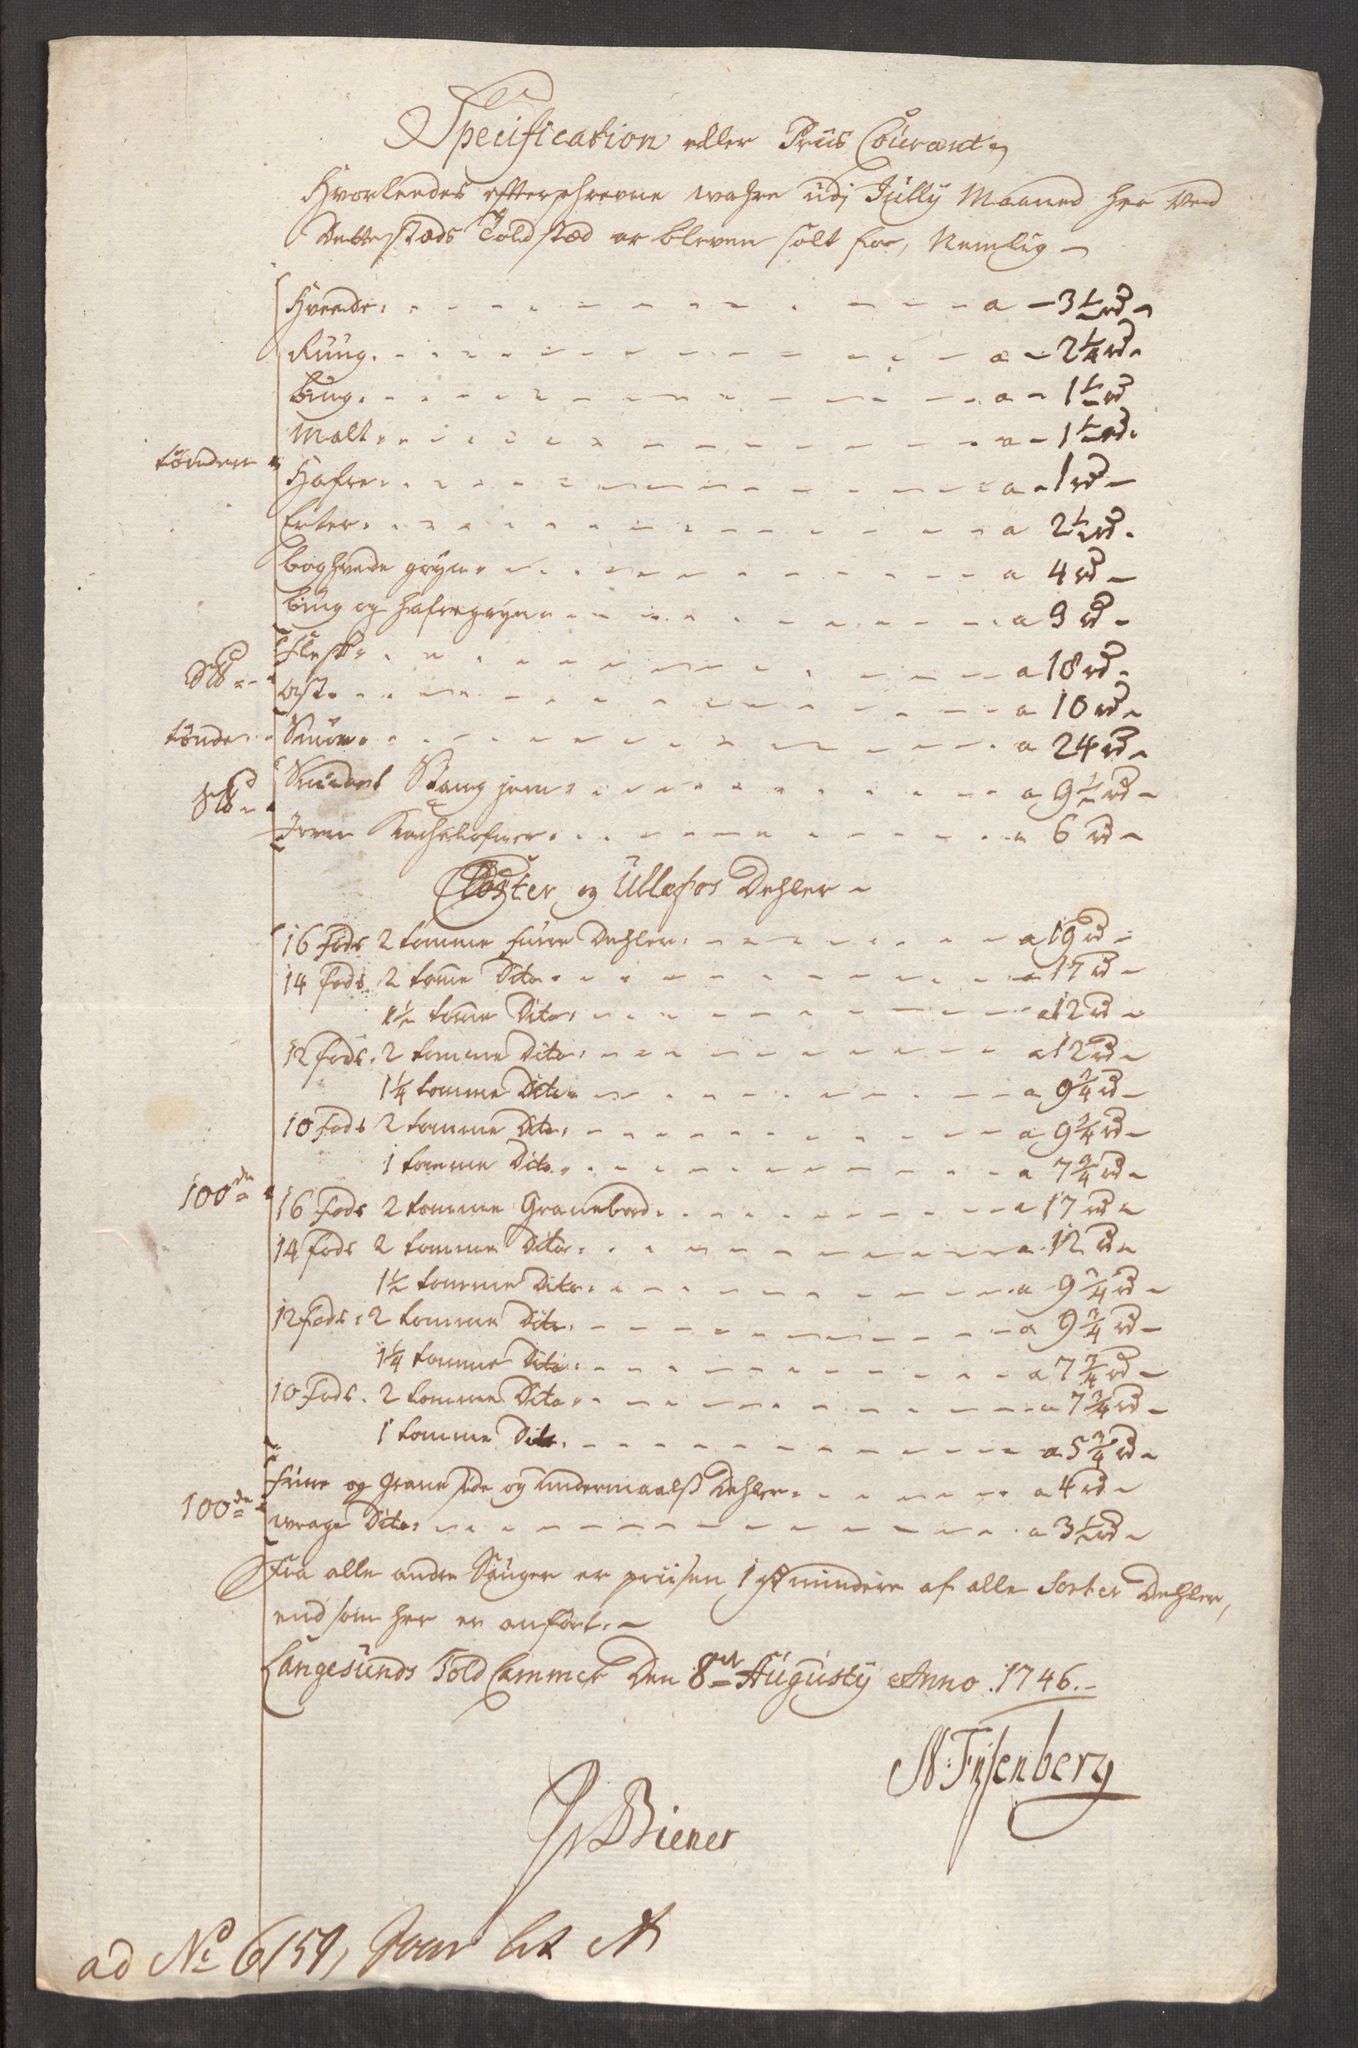 Specification eller Priis Courant
Hvorleedes efterschrevne wahre udj Jully Maaned her ved
dette stæds Told stæd er bleven solt for, Nemlig
Hvede a 3½ rd
Rug a 2¼ rd
bug a 1½ rd
Malt a 1½ rd
tønden
Hafre a 1 rd
Erter a 2½ rd
boghvede gryn a 4 rd
bug og hafregryn a 3 rd
Flesk a 18 rd
ost a 10 rd
tønde Smør a 24 rd
Smidet Stang jern a 9½ rd
Jern Kachelofner a 6 rd
Closter og Ullefos Dehler
16 fods 2 tomme furre Dehler a 19 rd
14 fods 2 tome Dito a 17 rd
1½ tome Dito a 12 rd
12 fods 2 tomme Dito a 12 rd
1¼ tomme Dito a 9¾ rd
10 fods 2 tomme Dito a 9¾ rd
1 tomme Dito a 7¾ rd
100de 16 fods 2 tomme Granebord a 17 rd
14 fods 2 tomme Dito a 12 rd
1½ tomme Dito a 9¾ rd
12 fods 2 tomme Dito a 9¾ rd
1¼ tomme Dito a 7¾ rd
10 fods 2 tomme Dito a 7¾ rd
1 tomme Dito a 5¾ rd
furre og grane side og undermaals Dehler a 4 rd
100de
wrage Dito a 3½ rd
Fra alle andre Sauger er priisen 1 rd mindre af alle Sorter Dehler,
end som her er anført.
Langesunds Told Cammer den 8de Augusty Anno 1746.
N: Fysenberg
Biener
ad No 6159, Lit A